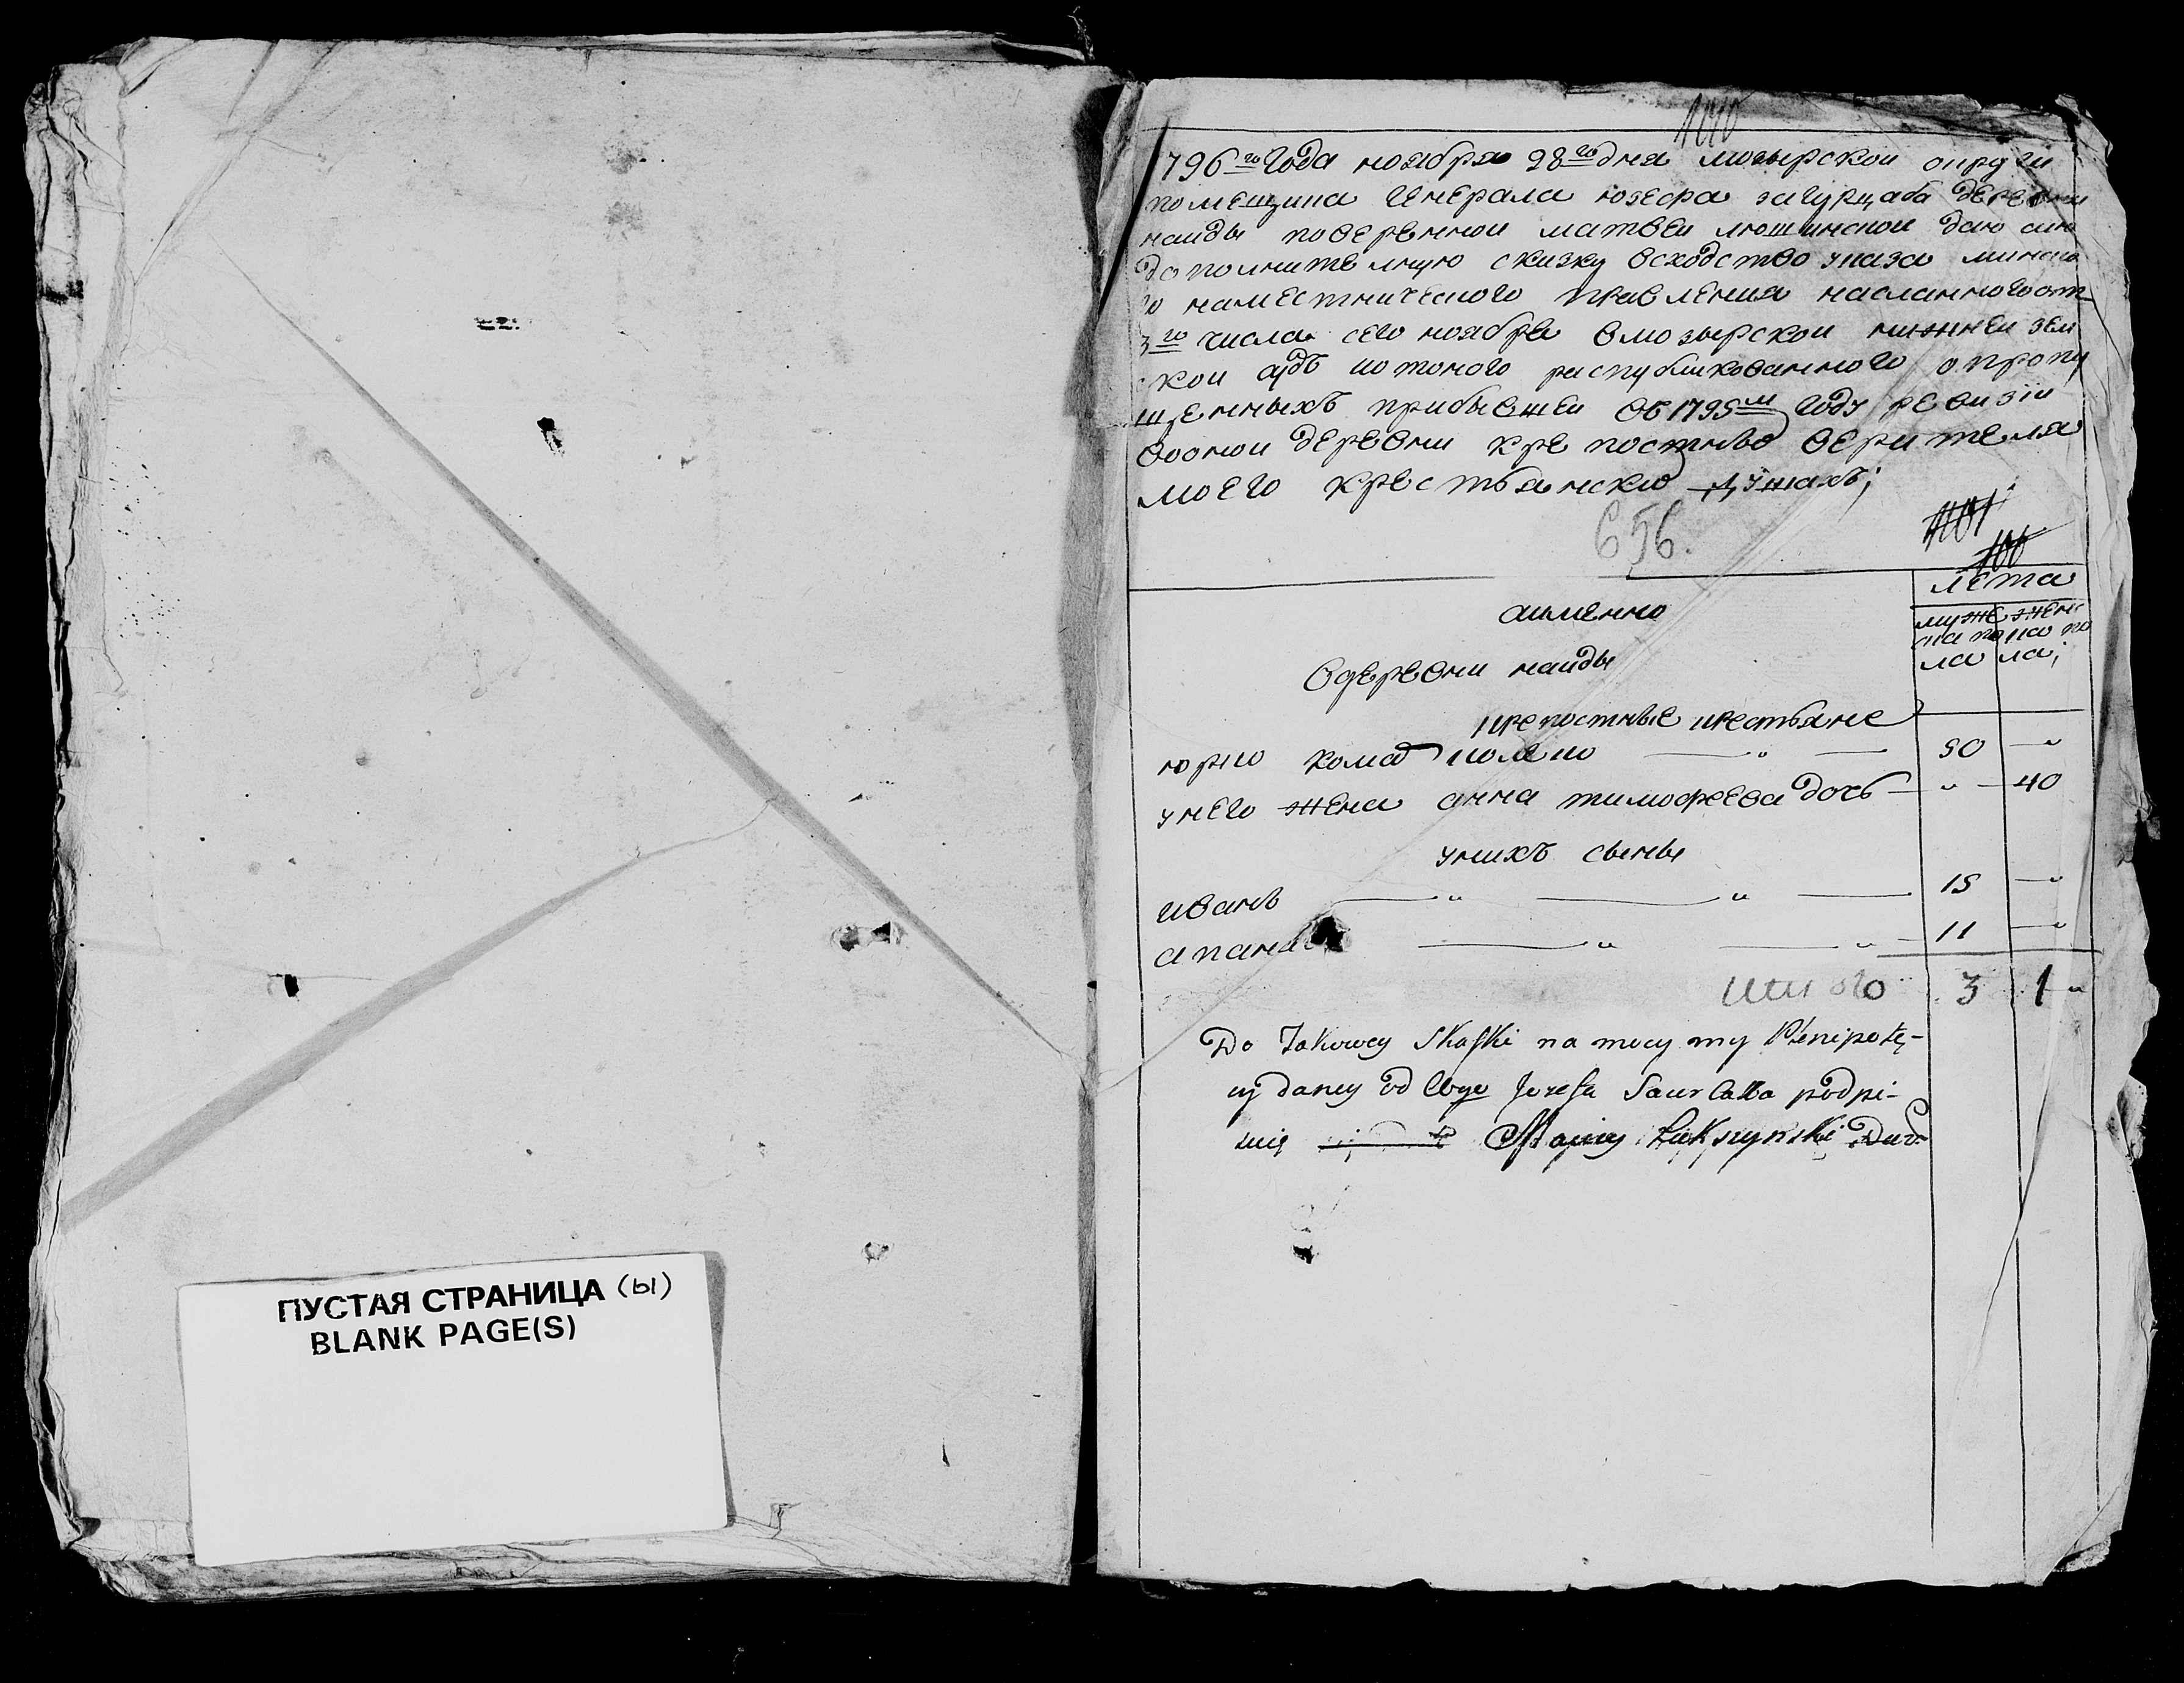 ПУСТАЯ СТРАНИЦА (ы)
BLANK PAGE(S)
796го года ноября 28го дня мозырской округи
помещика генерала юзефа деревни
наиды поверенной матвеи люшинской даю сию
дополнителную скизку всходство указа минско
го наместнического правления насланного от
3го числа сего ноября вмозырской нижнеи зем
ской судъ потоного распубликованного опропу
щенныхъ прибывшеи во 1795м году ревизіи
воонои деревни крепостныо верителя
моего крестьянскио душахъ;
656.
лета
аименно
муже женс
ска по ка по
ла ла;
Вдеревни наиды
крепостные крестьяне
юрко 50
унего жена анна тимофеева дочь 40
унихъ сыны
иванъ 15
апана 11
итого 3 1
Do Takowey Skaski na mocy my Plenipotę-
cyi daney od Józefa podpi-
suię Maciey Łukszynski